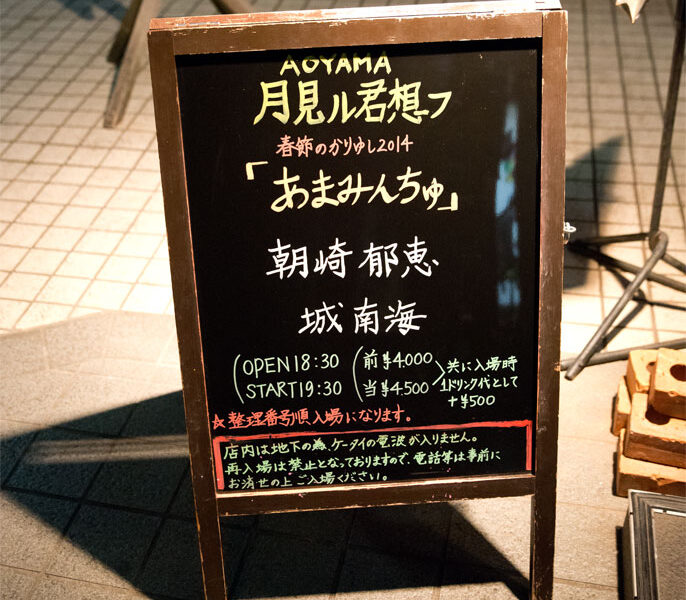 AOYAMA
月見ル君想フ
春節のかりゆし2014
「あまみんちゅ」
朝崎郁恵
城南海
OPEN18:30
START19:30
前¥4.000
当¥4.500
共に入場時
1ドリンク代として
+¥500
☆整理番号順入場になります。
店内は地下の為、ケータイの電波が入りません。
再入場は禁止となっておりますので、電話等は事前に
お済せの上ご入場ください。